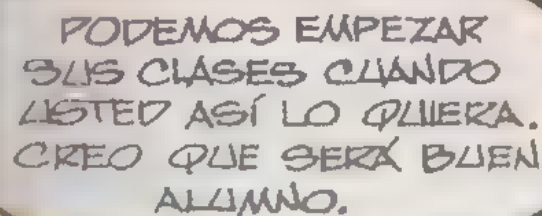 PODEMOS EMPEZAR
SUS CLASES CUANDO
USTED ASÍ LO QUIERA.
CREO QUE SERÁ BUEN
ALUMNO.